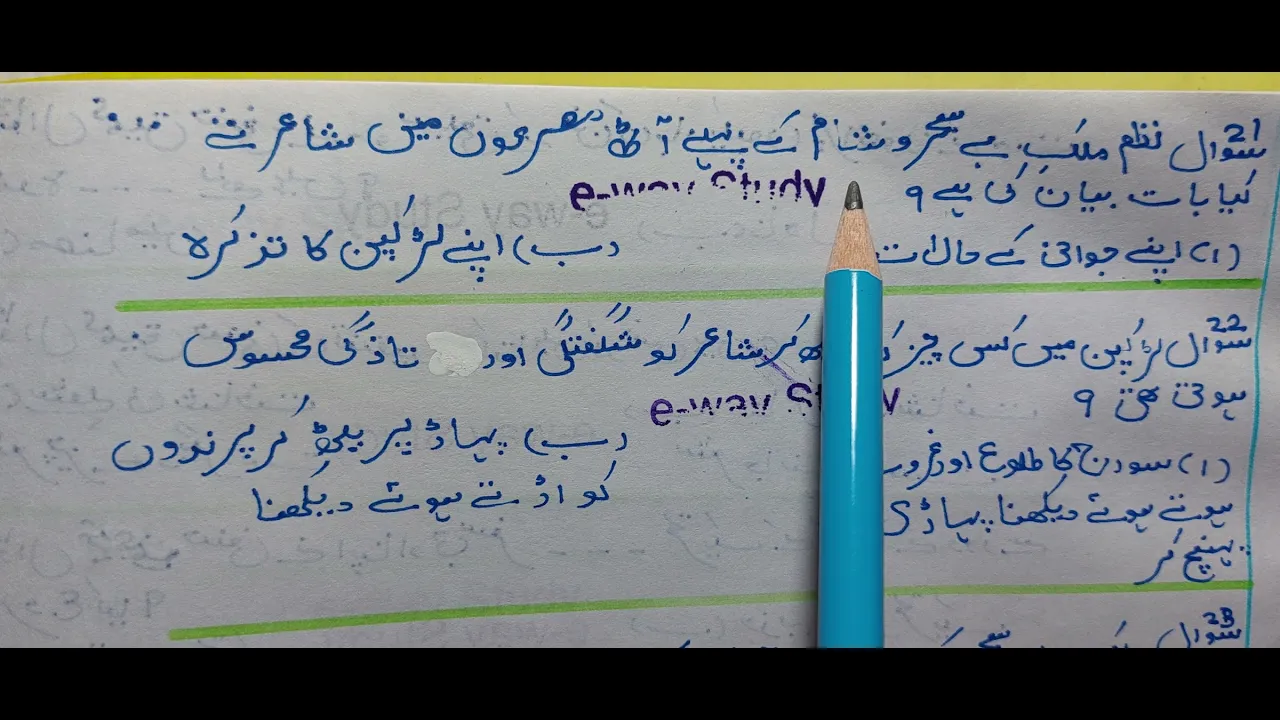 سوال 21 نظم ملکِ بے سحر و شام کے پہلے آٹھ مصرعوں میں شاعر نے
کیا بات بیان کی ہے ؟
e-way Study
(ا) اپنے جوانی کے حالات
(ب) اپنے لڑکپن کا تذکرہ
سوال 22 لڑکپن میں کس چیز کو دیکھ کر شاعر کو شگفتگی اور تازگی محسوس
ہوتی تھی ؟
e-way Study
(ا) سورج کا طلوع اور غروب
ہوتے ہوئے دیکھنا پہاڑی
پہنچ کر
(ب) پہاڑ پر بیٹھ کر پرندوں
کو اڑتے ہوئے دیکھنا
سوال 23